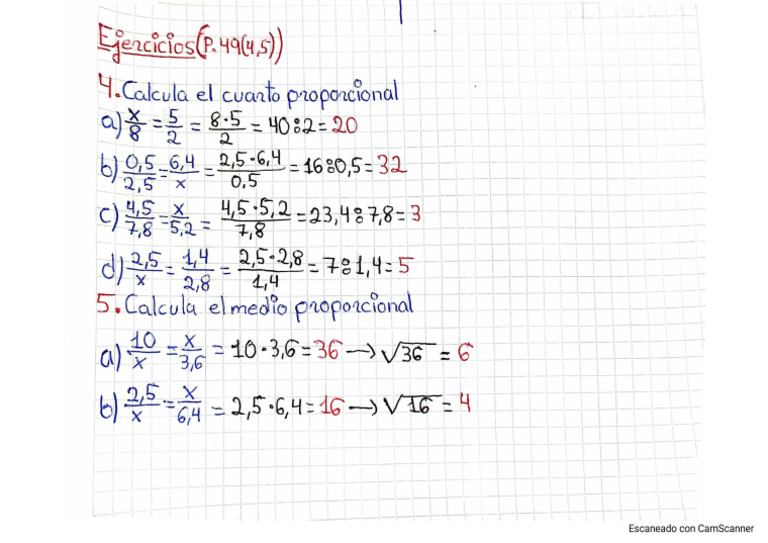 Ejercicios (P.49(4,5))
4. Calcula el cuarto proporcional
a) x/8 = 5/2 = 8·5/2 = 40:2 = 20
b) 0,5/2,5 = 6,4/x = 2,5·6,4/0,5 = 16:0,5 = 32
c) 4,5/7,8 = x/5,2 = 4,5·5,2/7,8 = 23,4:7,8 = 3
d) 2,5/x = 1,4/2,8 = 2,5·2,8/1,4 = 7:1,4 = 5
5. Calcula el medio proporcional
a) 10/x = x/3,6 = 10·3,6 = 36 → √36 = 6
b) 2,5/x = x/6,4 = 2,5·6,4 = 16 → √16 = 4
Escaneado con CamScanner